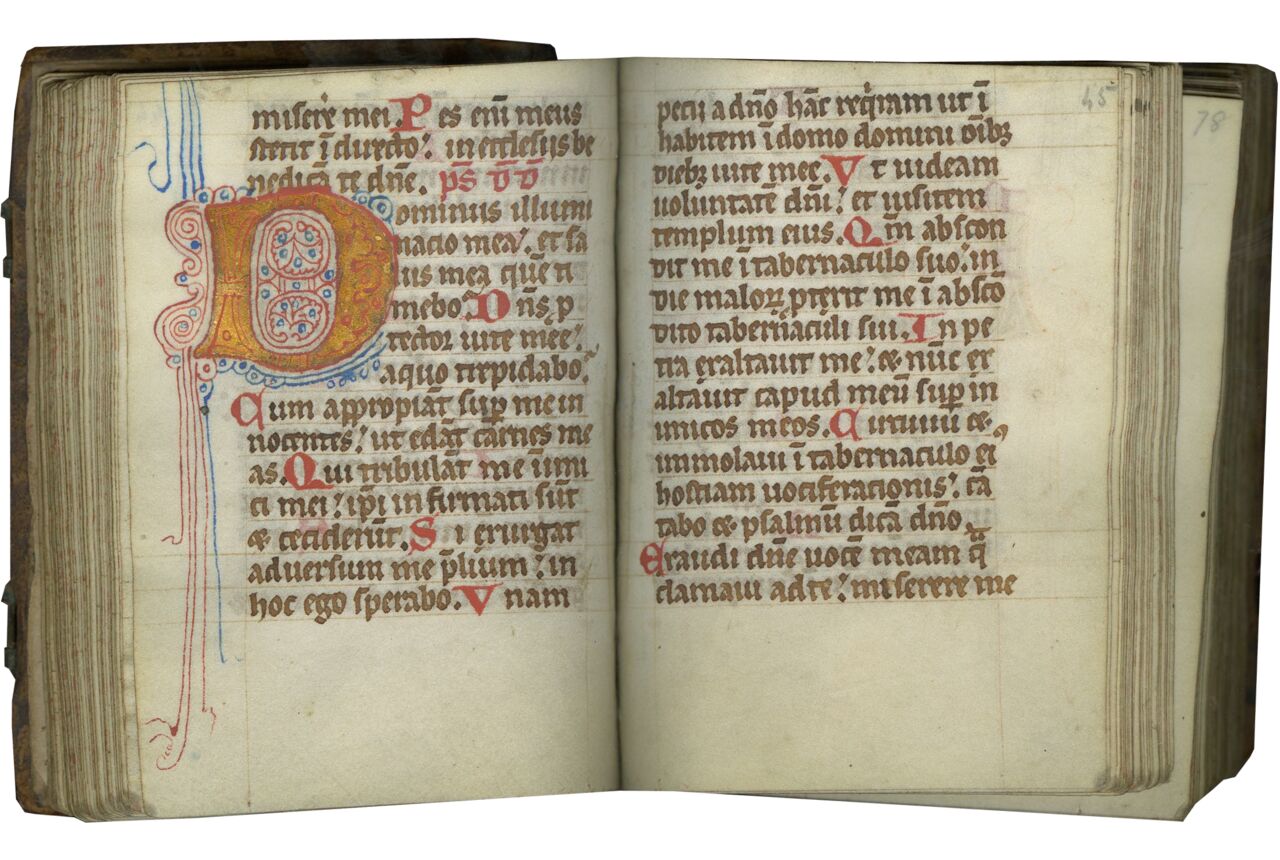 misere᷑ mei. Pes eni᷑ meus
stetit ī directo: in ecclesijs be
nedicā te dn̄e. ps̄ dd̄
Dominus illumi
nacio mea: et sa
lus mea quē ti
mebo. Dn̄s p
tector uite mee:
a quo trepidabo.
Cum appropiāt sup me in
nocentes: ut edāt carnes me
as. Qui tribulāt me inimi
ci mei: ip̄i infirmati sūt
et ceciderūt. Si exurgat
adversum me p̄lium: in
hoc ego sperabo. Vnam
45
78
pecij a dn̄o hāc req̇ram ut ī
habitem ī domo domini oīb3
dieb3 uite mee. Vt uideam
voluntatē dn̄i: et uisitem
templum eius. Qm̄ abscon
dit me ī tabernaculo suo: in
die malorꝝ ptexit me ī absco
dito tabernaculi sui. In pe
tra exaltauit me: et nūc ex
altauit capud meū sup in
imicos meos. Circuiui et
immolaui ī tabernaculo ei
hostiam uociferacionis: cā
tabo et psalmū dicā dn̄o.
Exaudi dn̄e uocē meam q̄
clamaui ad te: miserere me